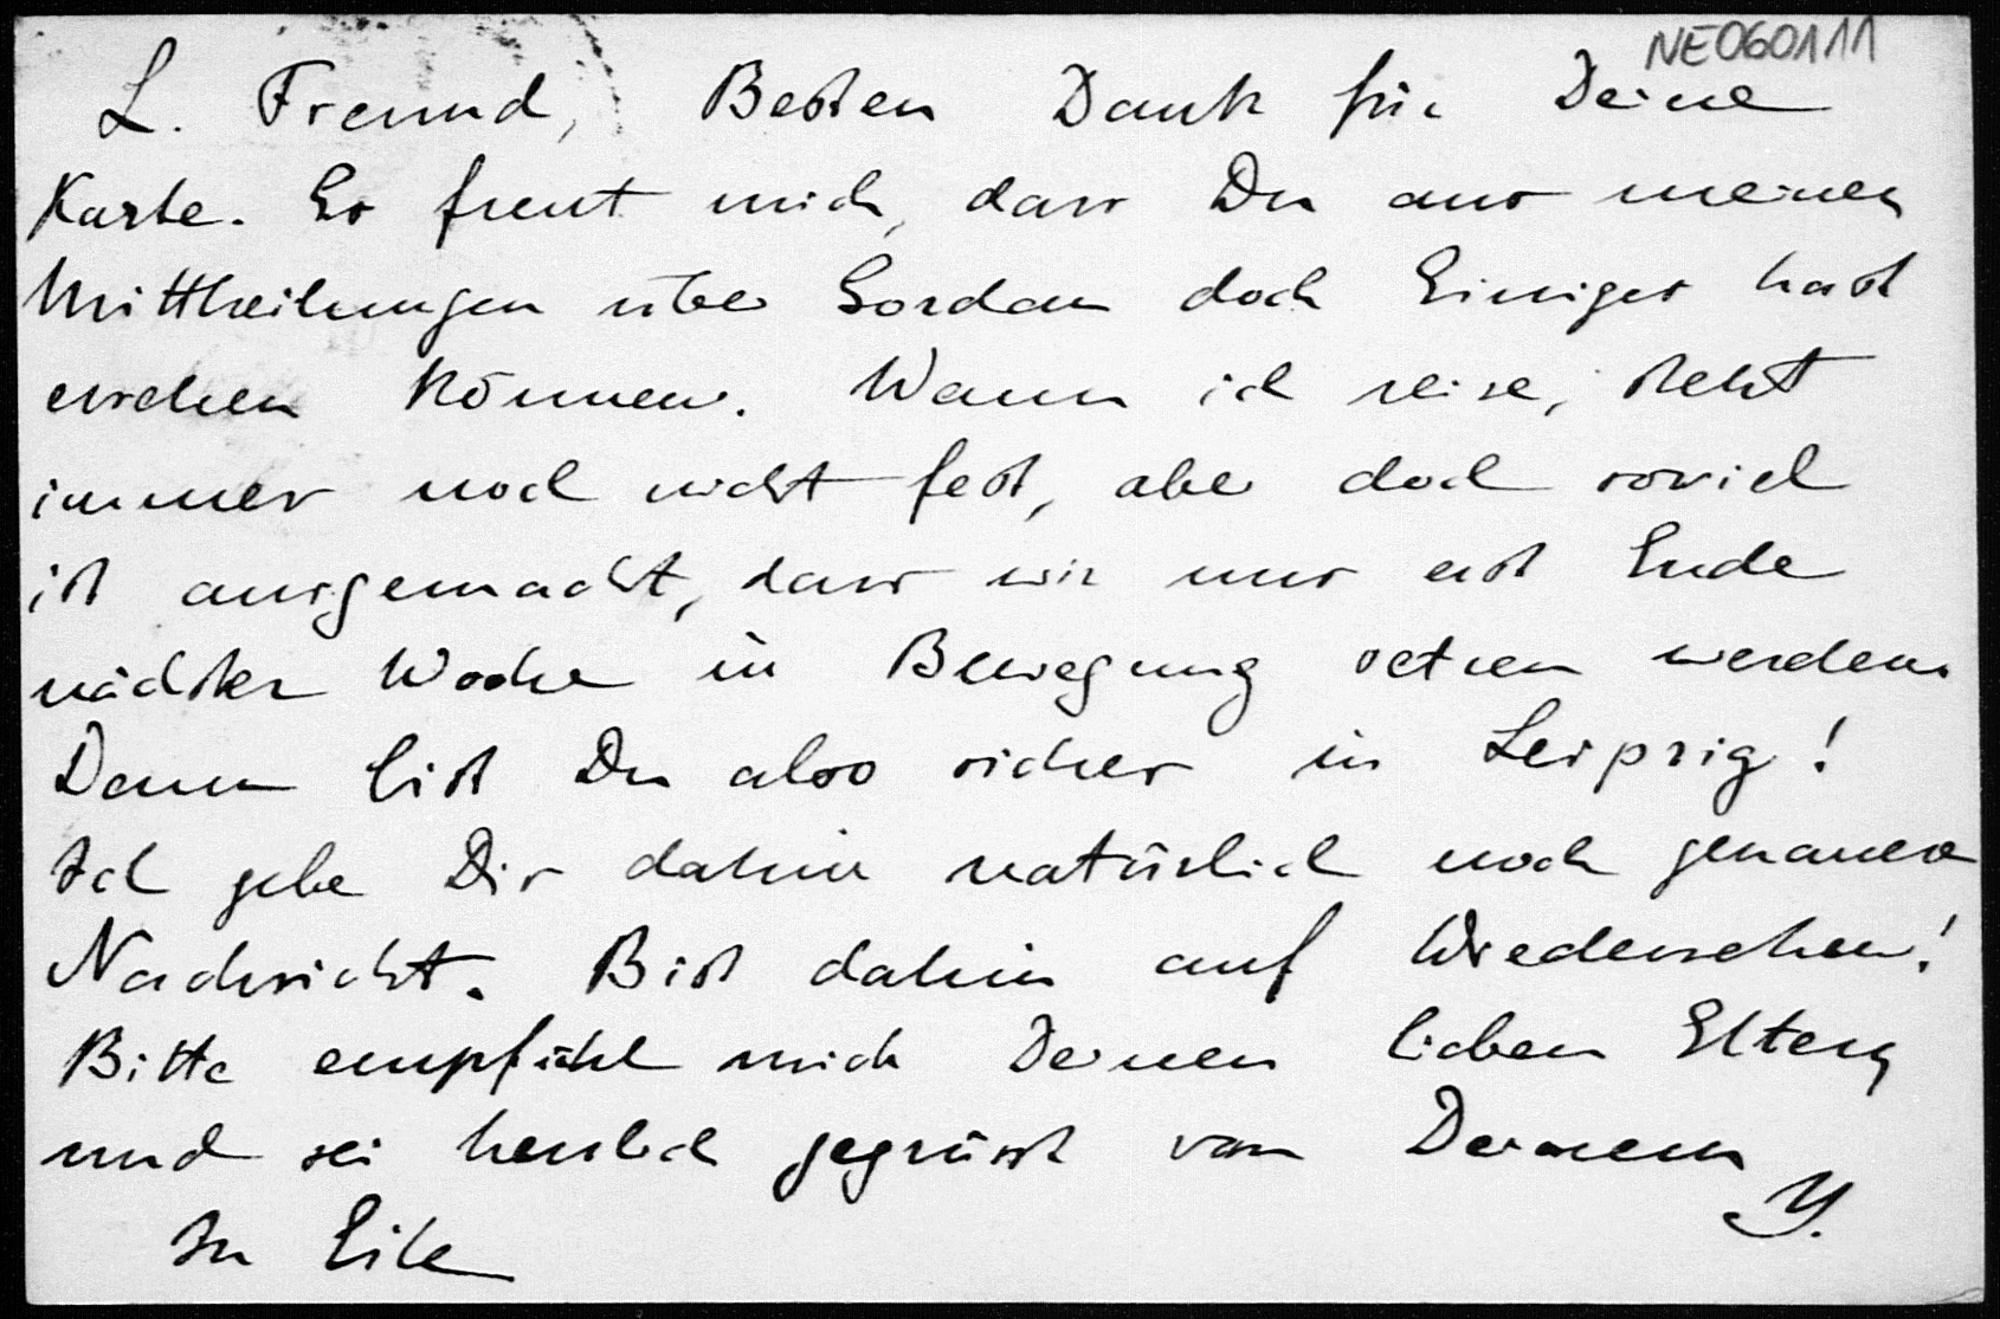 NE060111
L. Freund, Besten Dank für Deine
Karte. Es freut mich, dass Du aus meinen
Mittheilungen über Gordan doch Einiges hast
ersehen können. Wann ich reise, steht
immer noch nicht fest, aber doch soviel
ist ausgemacht, dass wir uns erst Ende
nächster Woche in Bewegung setzen werden.
Dann bist Du also sicher in Leipzig!
Ich gebe Dir dahin natürlich noch genauere
Nachricht. Bist dahin auf Wiedersehen!
Bitte empfiehl mich Deinen lieben Eltern
und sei herzlich gegrüsst von Deinem
In Eile